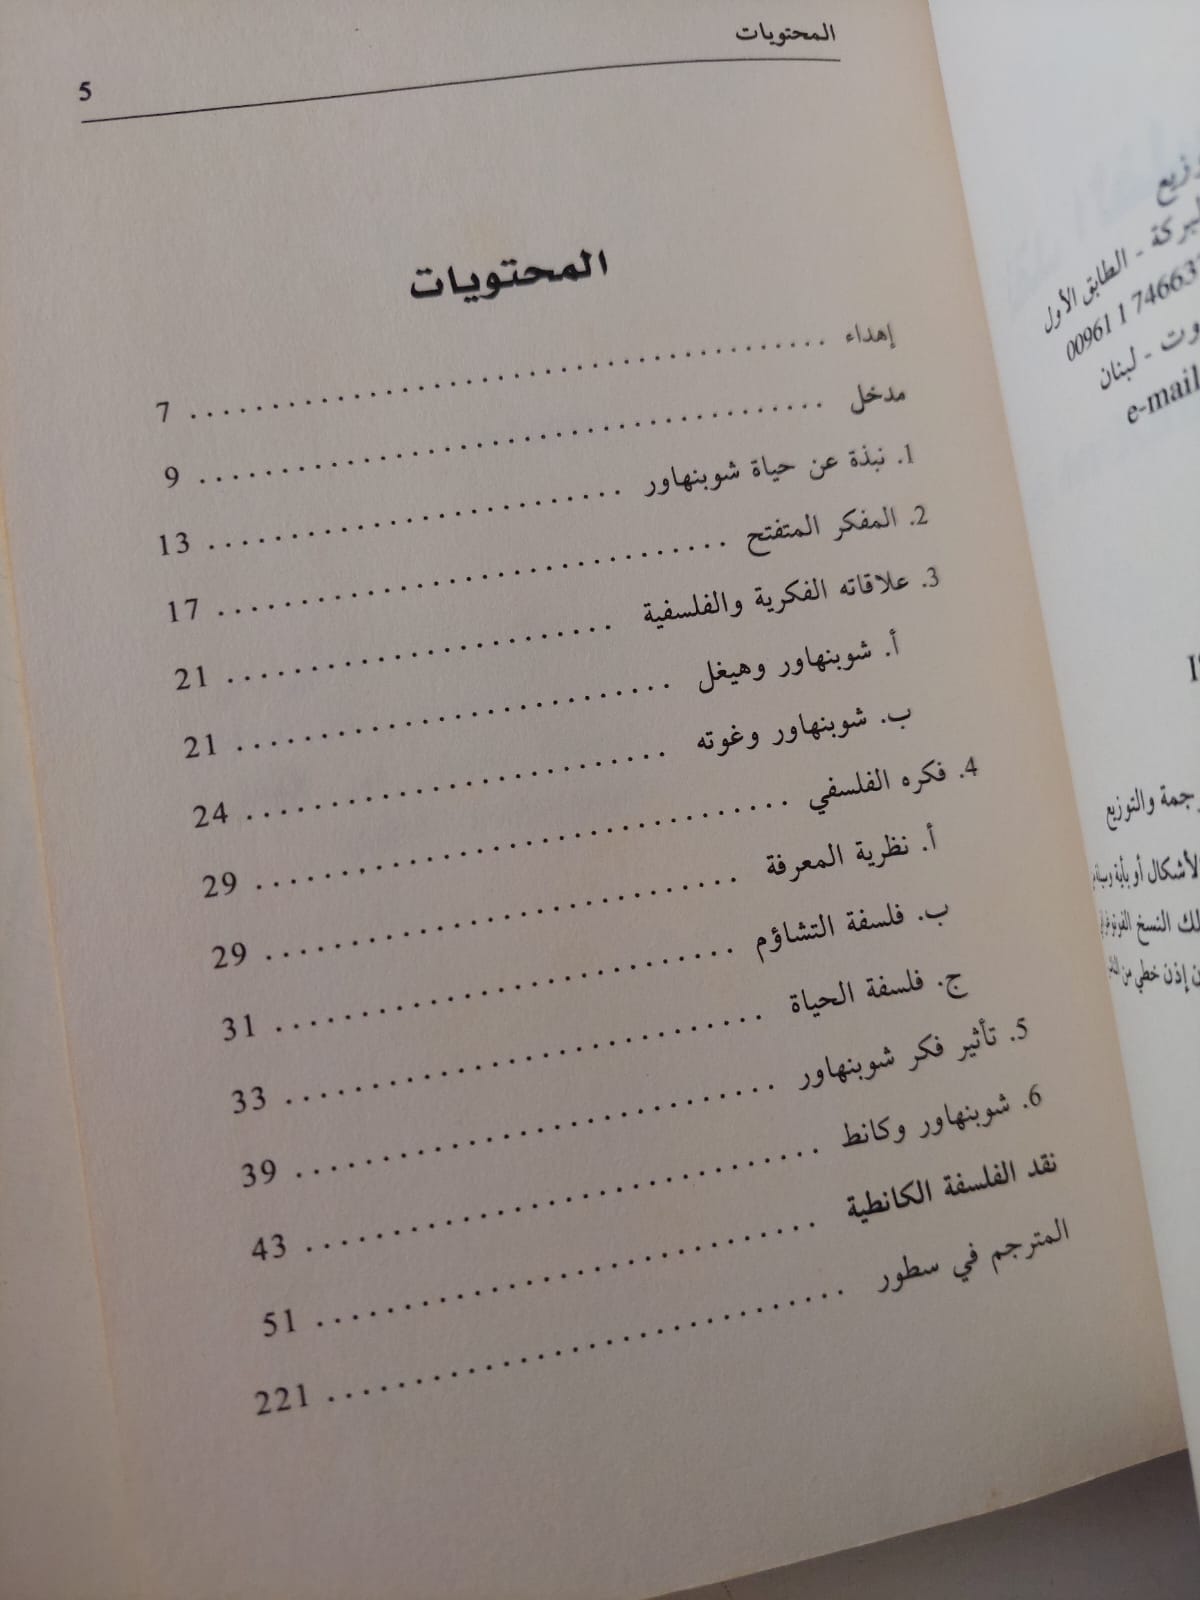 المحتويات
5
المحتويات
إهداء ........................................ 7
مدخل ........................................ 9
1. نبذة عن حياة شوبنهاور ........................................ 13
2. المفكر المتفتح ........................................ 17
3. علاقاته الفكرية والفلسفية ........................................ 21
أ. شوبنهاور وهيغل ........................................ 21
ب. شوبنهاور وغوته ........................................ 24
4. فكره الفلسفي ........................................ 29
أ. نظرية المعرفة ........................................ 29
ب. فلسفة التشاؤم ........................................ 31
ج. فلسفة الحياة ........................................ 33
5. تأثير فكر شوبنهاور ........................................ 39
6. شوبنهاور وكانط ........................................ 43
نقد الفلسفة الكانطية ........................................ 51
المترجم في سطور ........................................ 221
- الطابق الأول
00961 1 74663
- لبنان
e-mail
والتوزيع
الأشكال أو بأية
النسخ
إذن خطي من